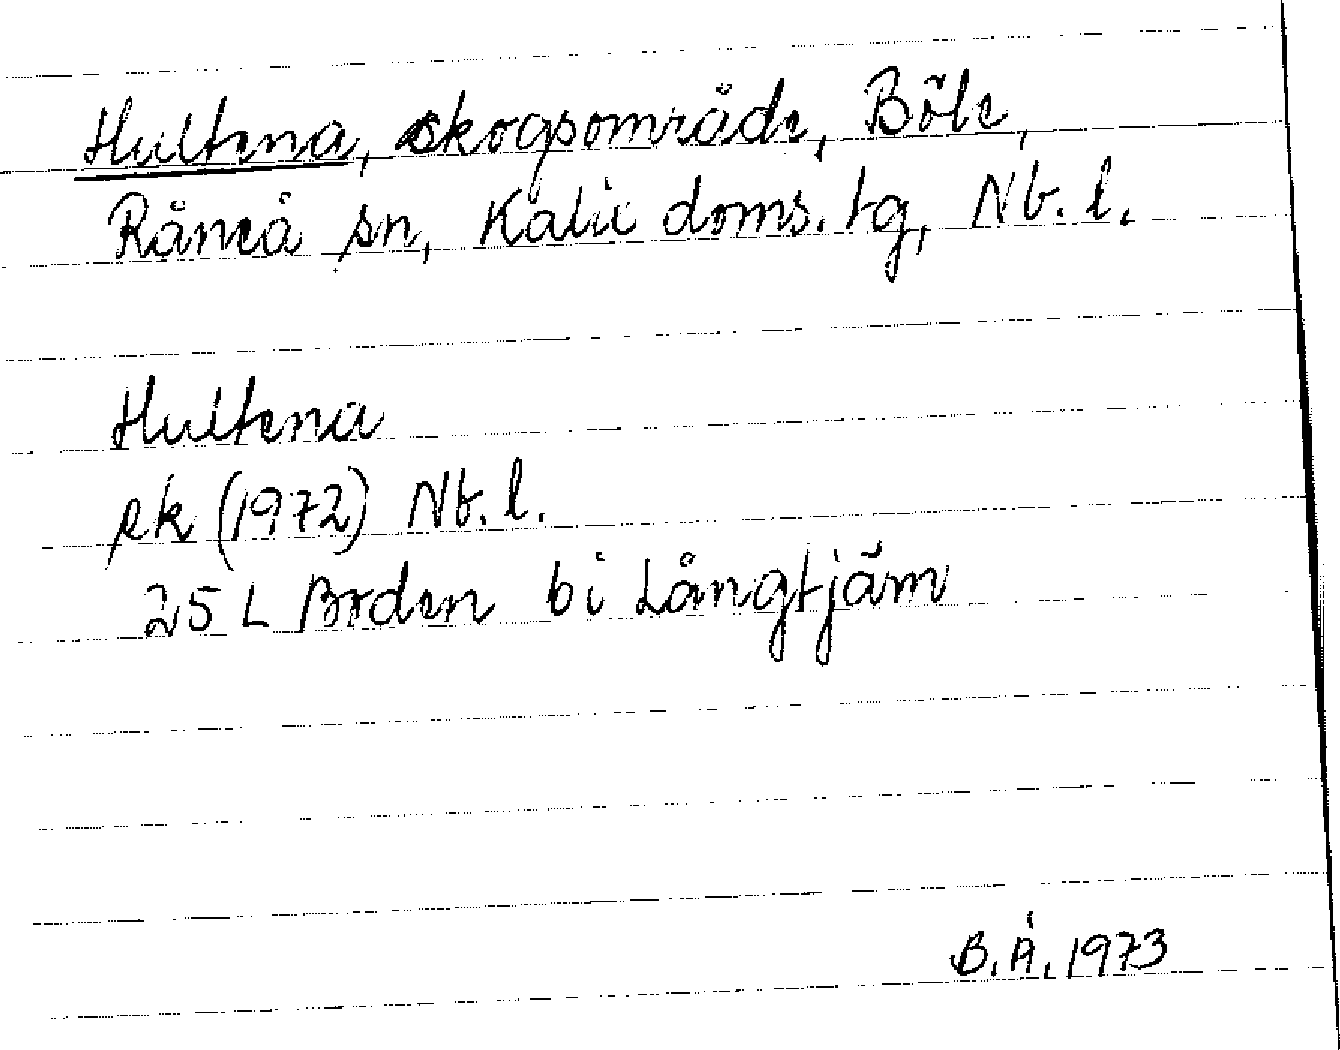 Hultena, skogsområde, Böle,
Råneå sn, Kalix doms. tg, Nb. l.
Hultena
ek (1972) Nb. l.
25 L Boden bi Långtjärn
B.Å. 1973